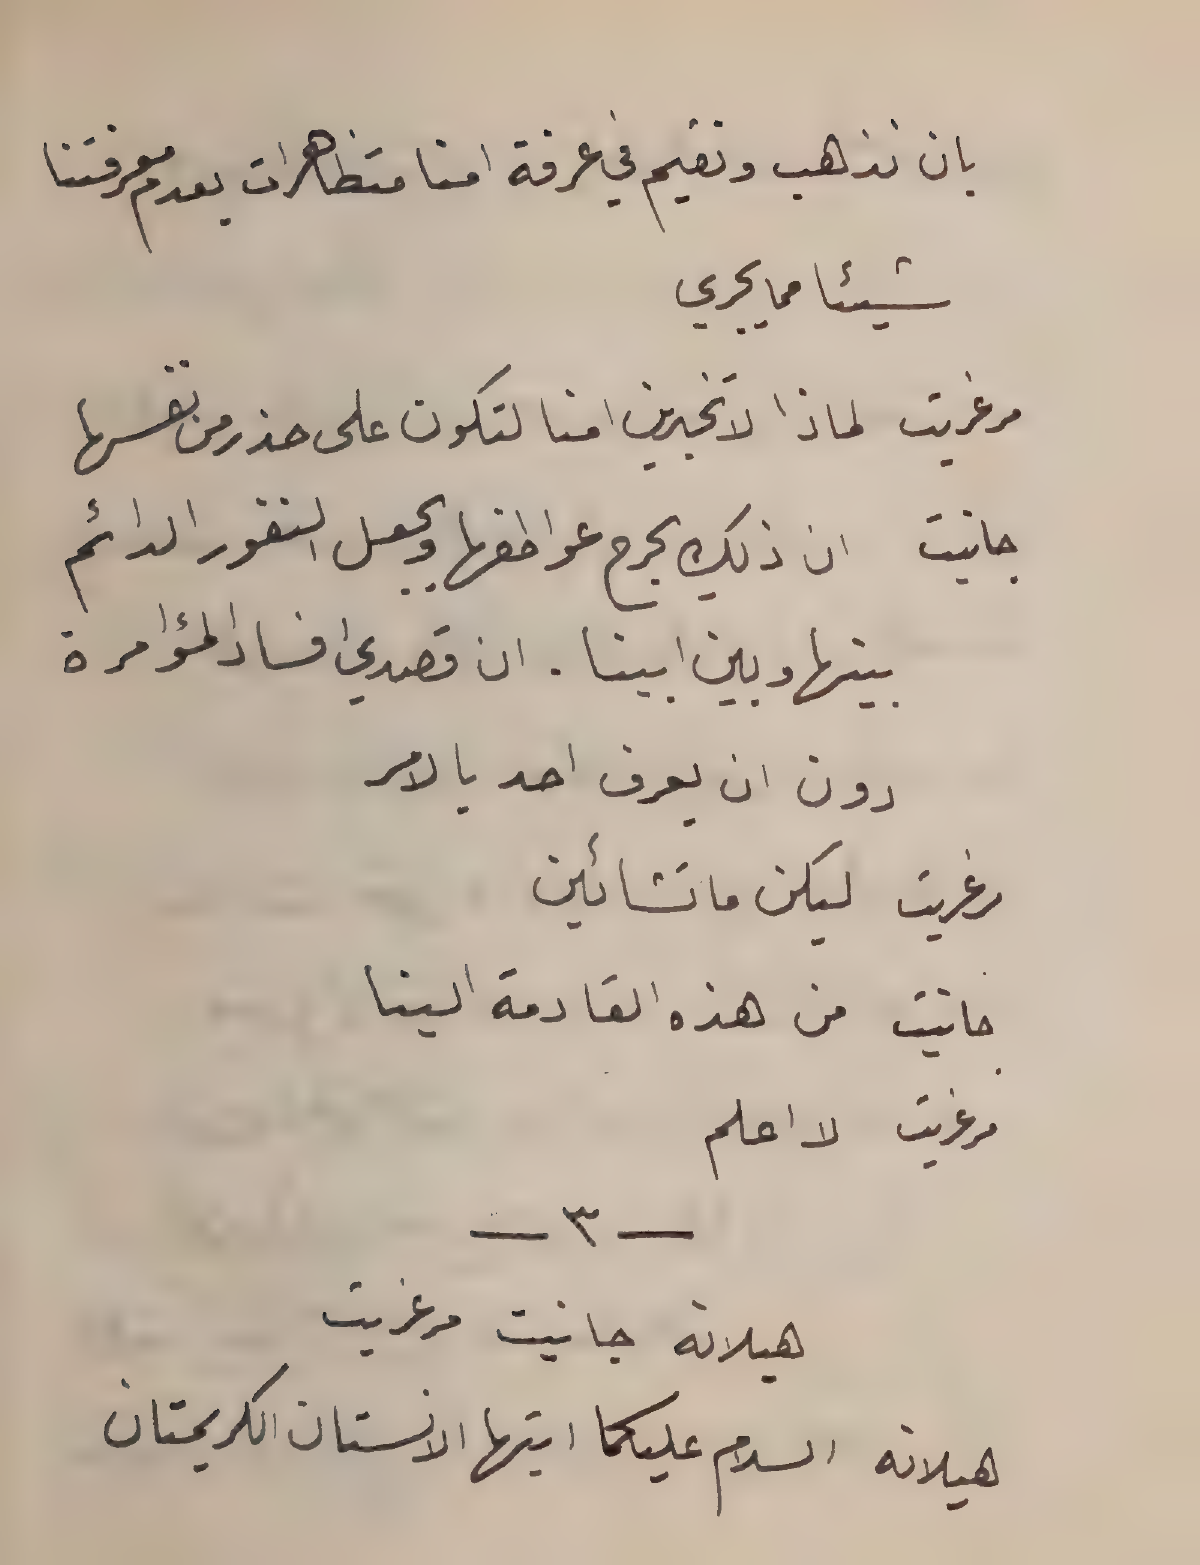 بان نذهب ونقيم في غرفة امنا متظاهرات بعدم معرفتنا
شيئا مما يجري
مرغريت لماذا لا تخبرين امنا لتكون على حذر من نفسها
جانيت ان ذلك يجرح عواطفها ويجعل النفور الدائم
بينها وبين ابينا . ان قصدي افساد المؤامرة
دون ان يعرف احد بالامر
مرغريت ليكن ما تشائين
جانيت من هذه القادمة الينا
مرغريت لا اعلم
— ٣ —
هيلانة جانيت مرغريت
هيلانة السلام عليكما ايتها الانستان الكريمتان